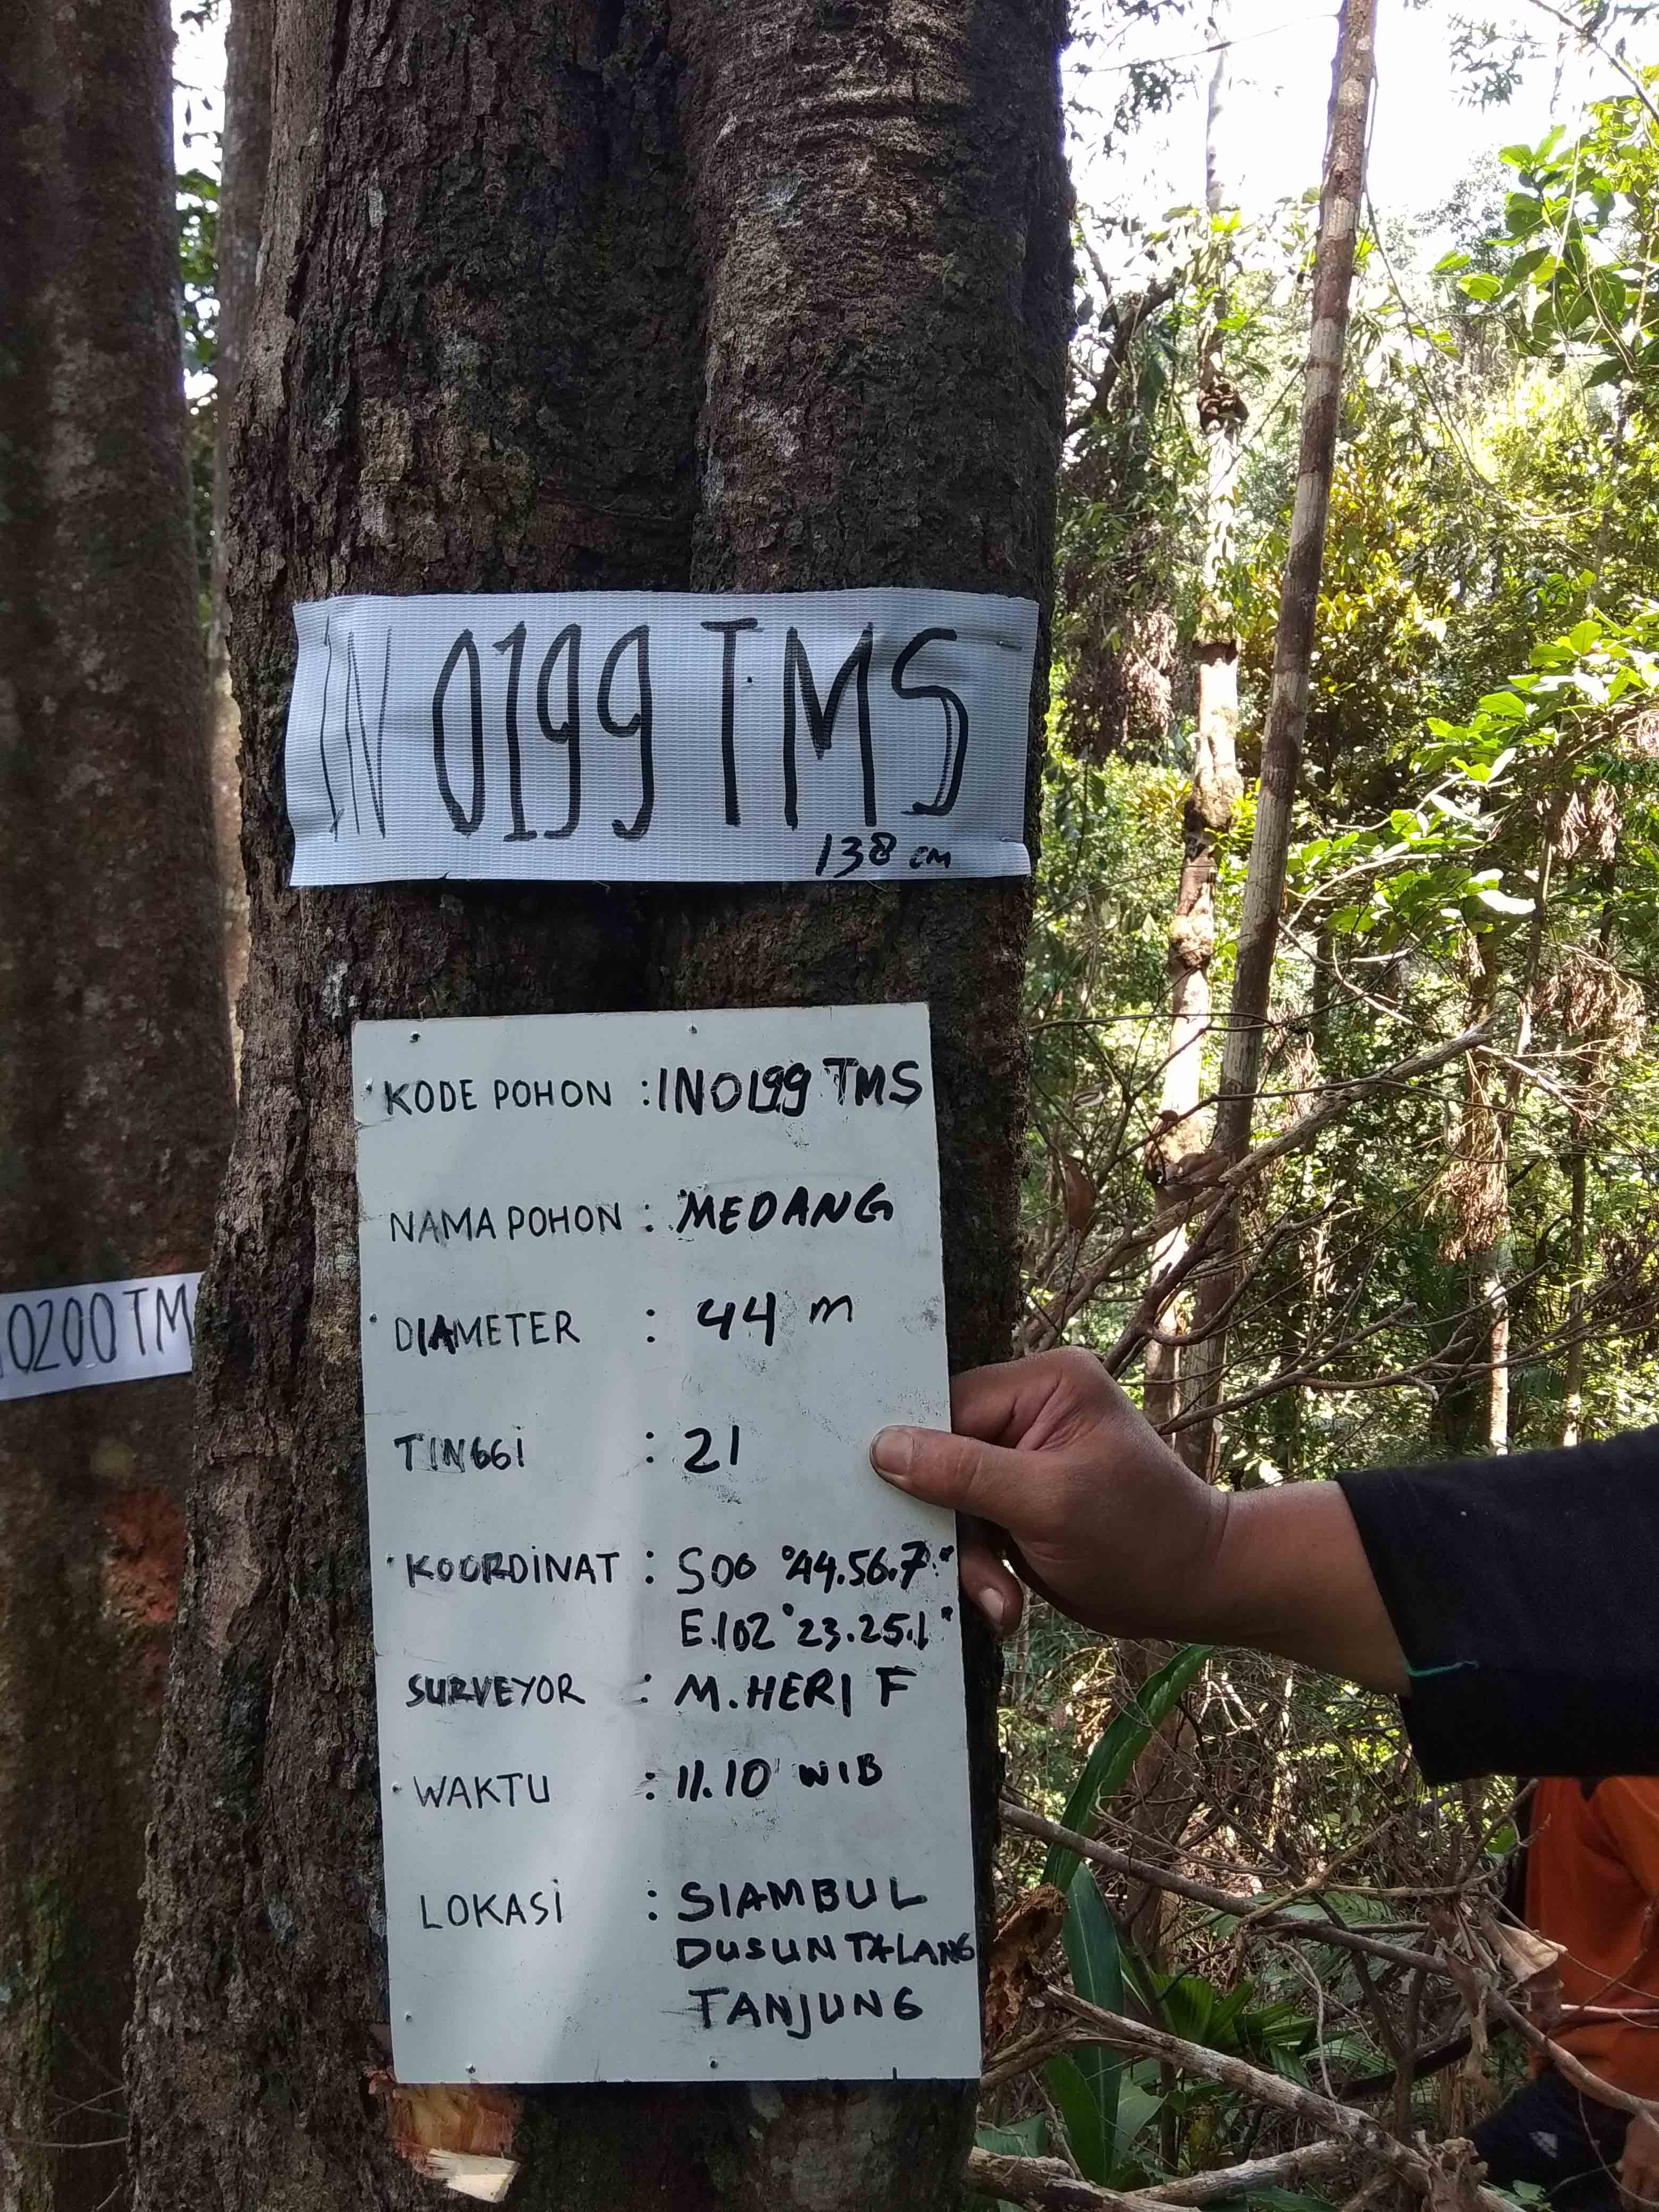 IN 0199 TMS
138 cm
KODE POHON : IN0199 TMS
NAMA POHON : MEDANG
DIAMETER : 44 m
TINGGI : 21
KOORDINAT : S00 °44.56.7"
E.102 °23.25.1"
SURVEYOR : M. HERI F
WAKTU : 11.10 WIB
LOKASI : SIAMBUL
DUSUN TALANG
TANJUNG
0200 TM